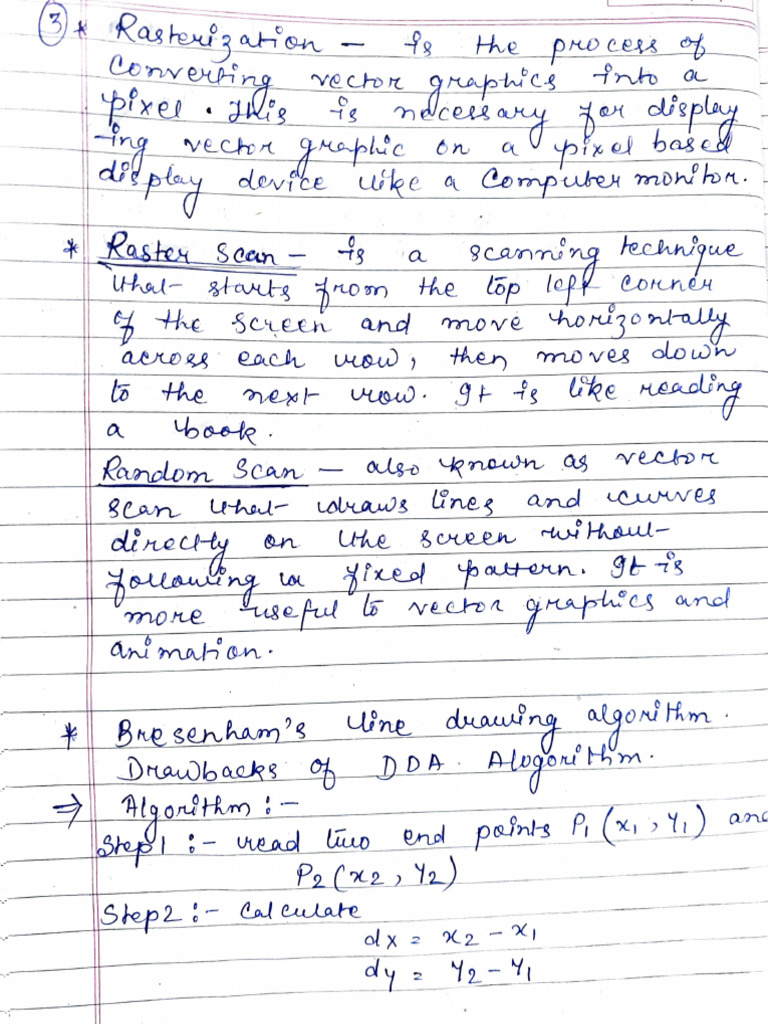 ③ * Rasterization - is the process of
converting vector graphics into a
pixel. This is necessary for display
-ing vector graphic on a pixel based
display device like a Computer monitor.
* Raster Scan - is a scanning technique
that starts from the top left corner
of the screen and move horizontally
across each row, then moves down
to the next row. It is like reading
a book.
Random Scan - also known as vector
scan that draws lines and curves
directly on the screen without
following a fixed pattern. It is
more useful to vector graphics and
animation.
* Bresenham's line drawing algorithm.
Drawbacks of DDA. Alogorithm.
⇒ Algorithm :-
Step1 :- read two end points P₁(x₁, y₁) and
P₂(x₂, y₂)
Step2 :- Calculate
dx = x₂ - x₁
dy = y₂ - y₁